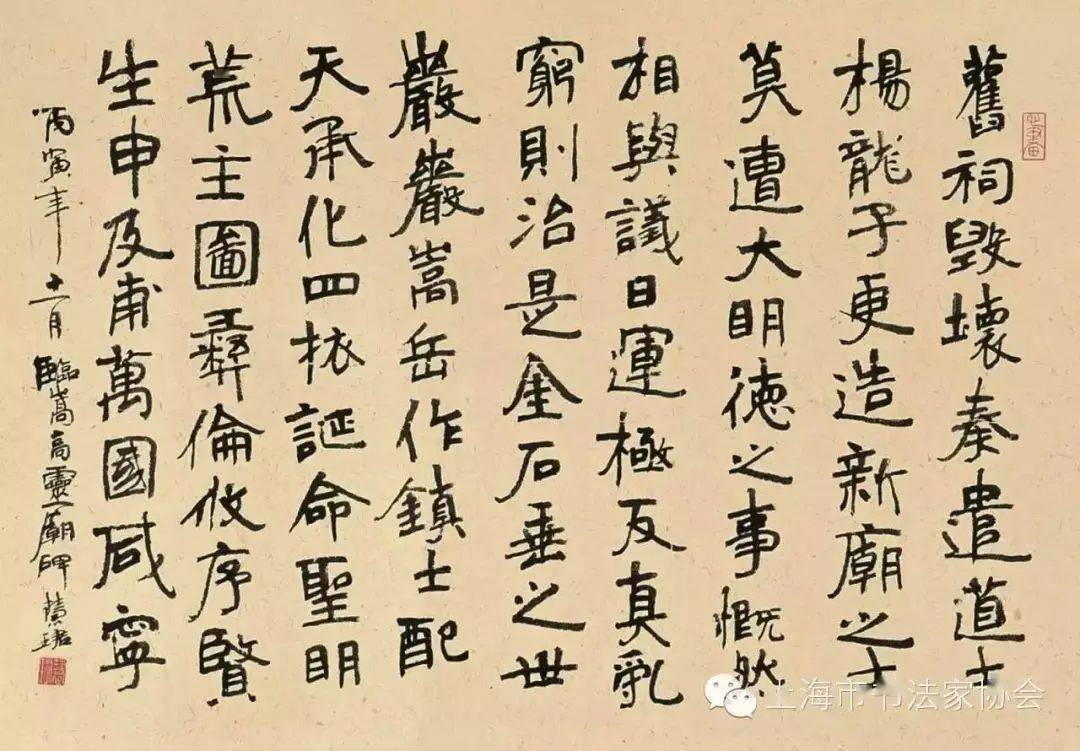 舊祠毀壞奏遣道士
楊龍子更造新廟之士
莫遭大明徳之事慨然
相與議曰運極反真乱
窮則治是金石垂之世
巖巖嵩岳作鎮土配
天承化四桍誕命聖明
荒主圖彝倫攸序賢
生申及甫萬國咸寧
丙寅年十一月臨嵩高靈廟碑
上海市书法家协会